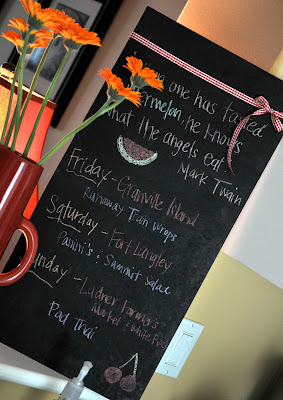 one has tasted
watermelon, he knows
what the angels eat.
Mark Twain
Friday - Granville Island
Runaway Train wraps
Saturday - Fort Langley
Panini's : Summit Salad
Sunday - Ladner Farmers
Market &
Pad Thai